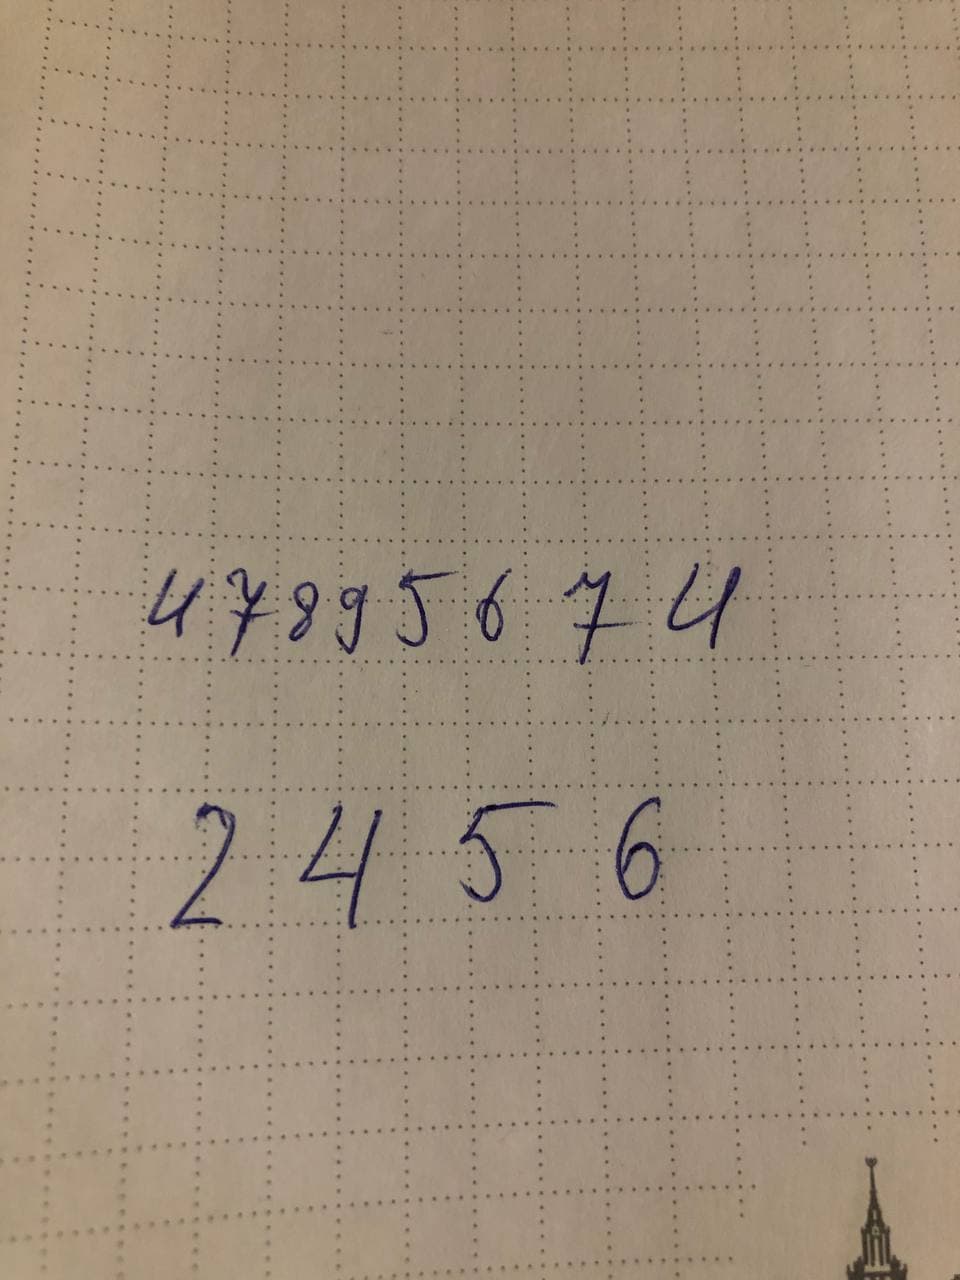 4 7 8 9 5 6 7 4
2 4 5 6